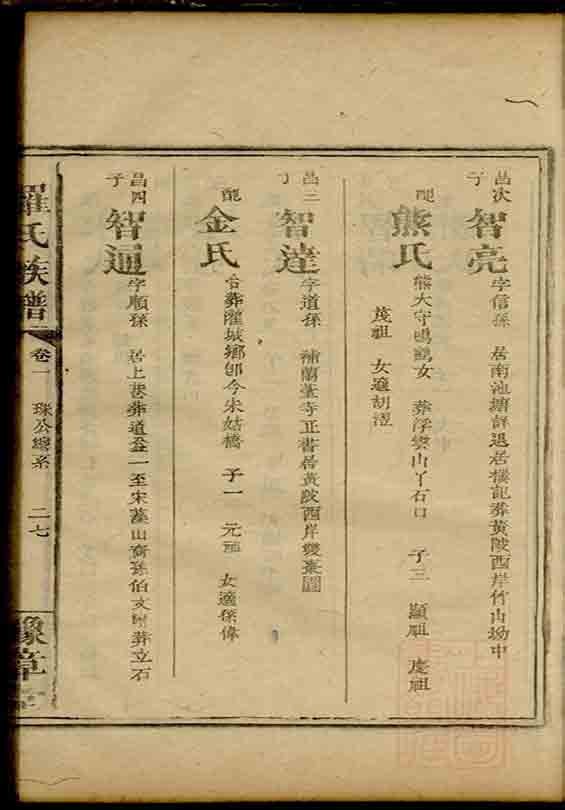 昌次子
智亮 字信孫 居南池塘詳退居樓記葬黃陂西岸竹山坳中
配熊氏 熊大守鳴鶴女 葬浮樂山丫石口 子三 顯祖 慶祖
茂祖 女適胡涇
昌三子
智達 字道孫 補蘭臺寺正書居黃陂西岸
配金氏 合葬灌城鄉卽今朱姑橋 子一 元 女適孫偉
昌四子
智通 字順孫 居上巷葬道 一至宋墓山裔孫伯文附葬立石
羅氏族譜
卷一 珠公總系 二七
豫章堂